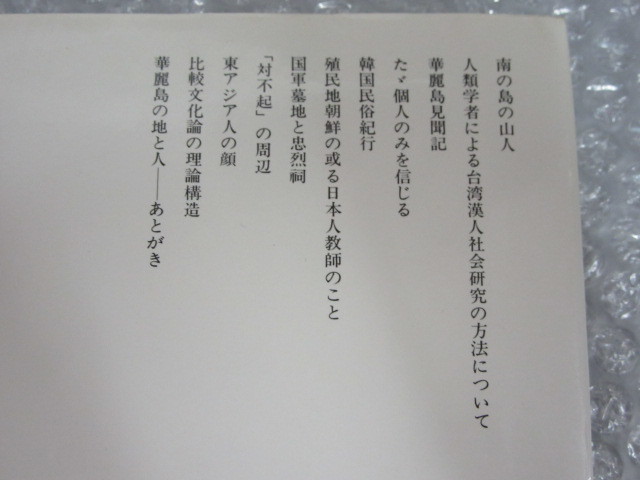 南の島の山人
人類学者による台湾漢人社会研究の方法について
華麗島見聞記
たゞ個人のみを信じる
韓国民俗紀行
殖民地朝鮮の或る日本人教師のこと
国軍墓地と忠烈祠
「対不起」の周辺
東アジア人の顔
比較文化論の理論構造
華麗島の地と人——あとがき